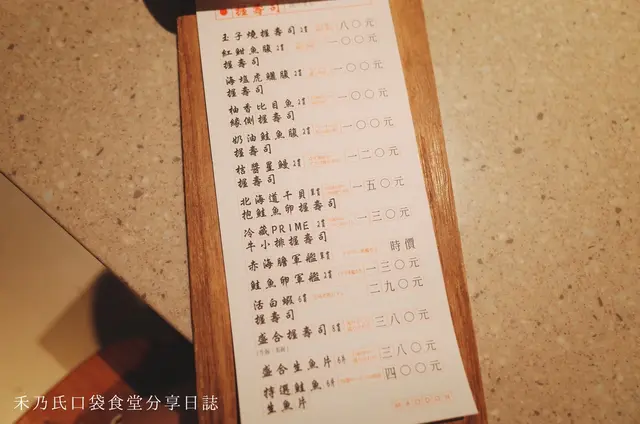 握壽司
玉子燒握壽司 2貫 八〇元
紅魽魚腹 2貫 一〇〇元
握壽司
海塩虎鱺腹 2貫 一〇〇元
握壽司
柚香比目魚 2貫 一〇〇元
緣側握壽司
奶油鮭魚腹 2貫 一〇〇元
握壽司
桔醬星鰻 2貫 一二〇元
握壽司
北海道干貝 一五〇元
抱鮭魚卵握壽司
冷藏PRIME 2貫 一三〇元
牛小排握壽司
赤海膽軍艦 時價
鮭魚卵軍艦 2貫 一三〇元
活白蝦 6貫 二九〇元
握壽司
盛合握壽司 8貫 三八〇元
盛合生魚片 6片 三八〇元
特選鮭魚 6片 四〇〇元
生魚片
禾乃氏口袋食堂分享日誌